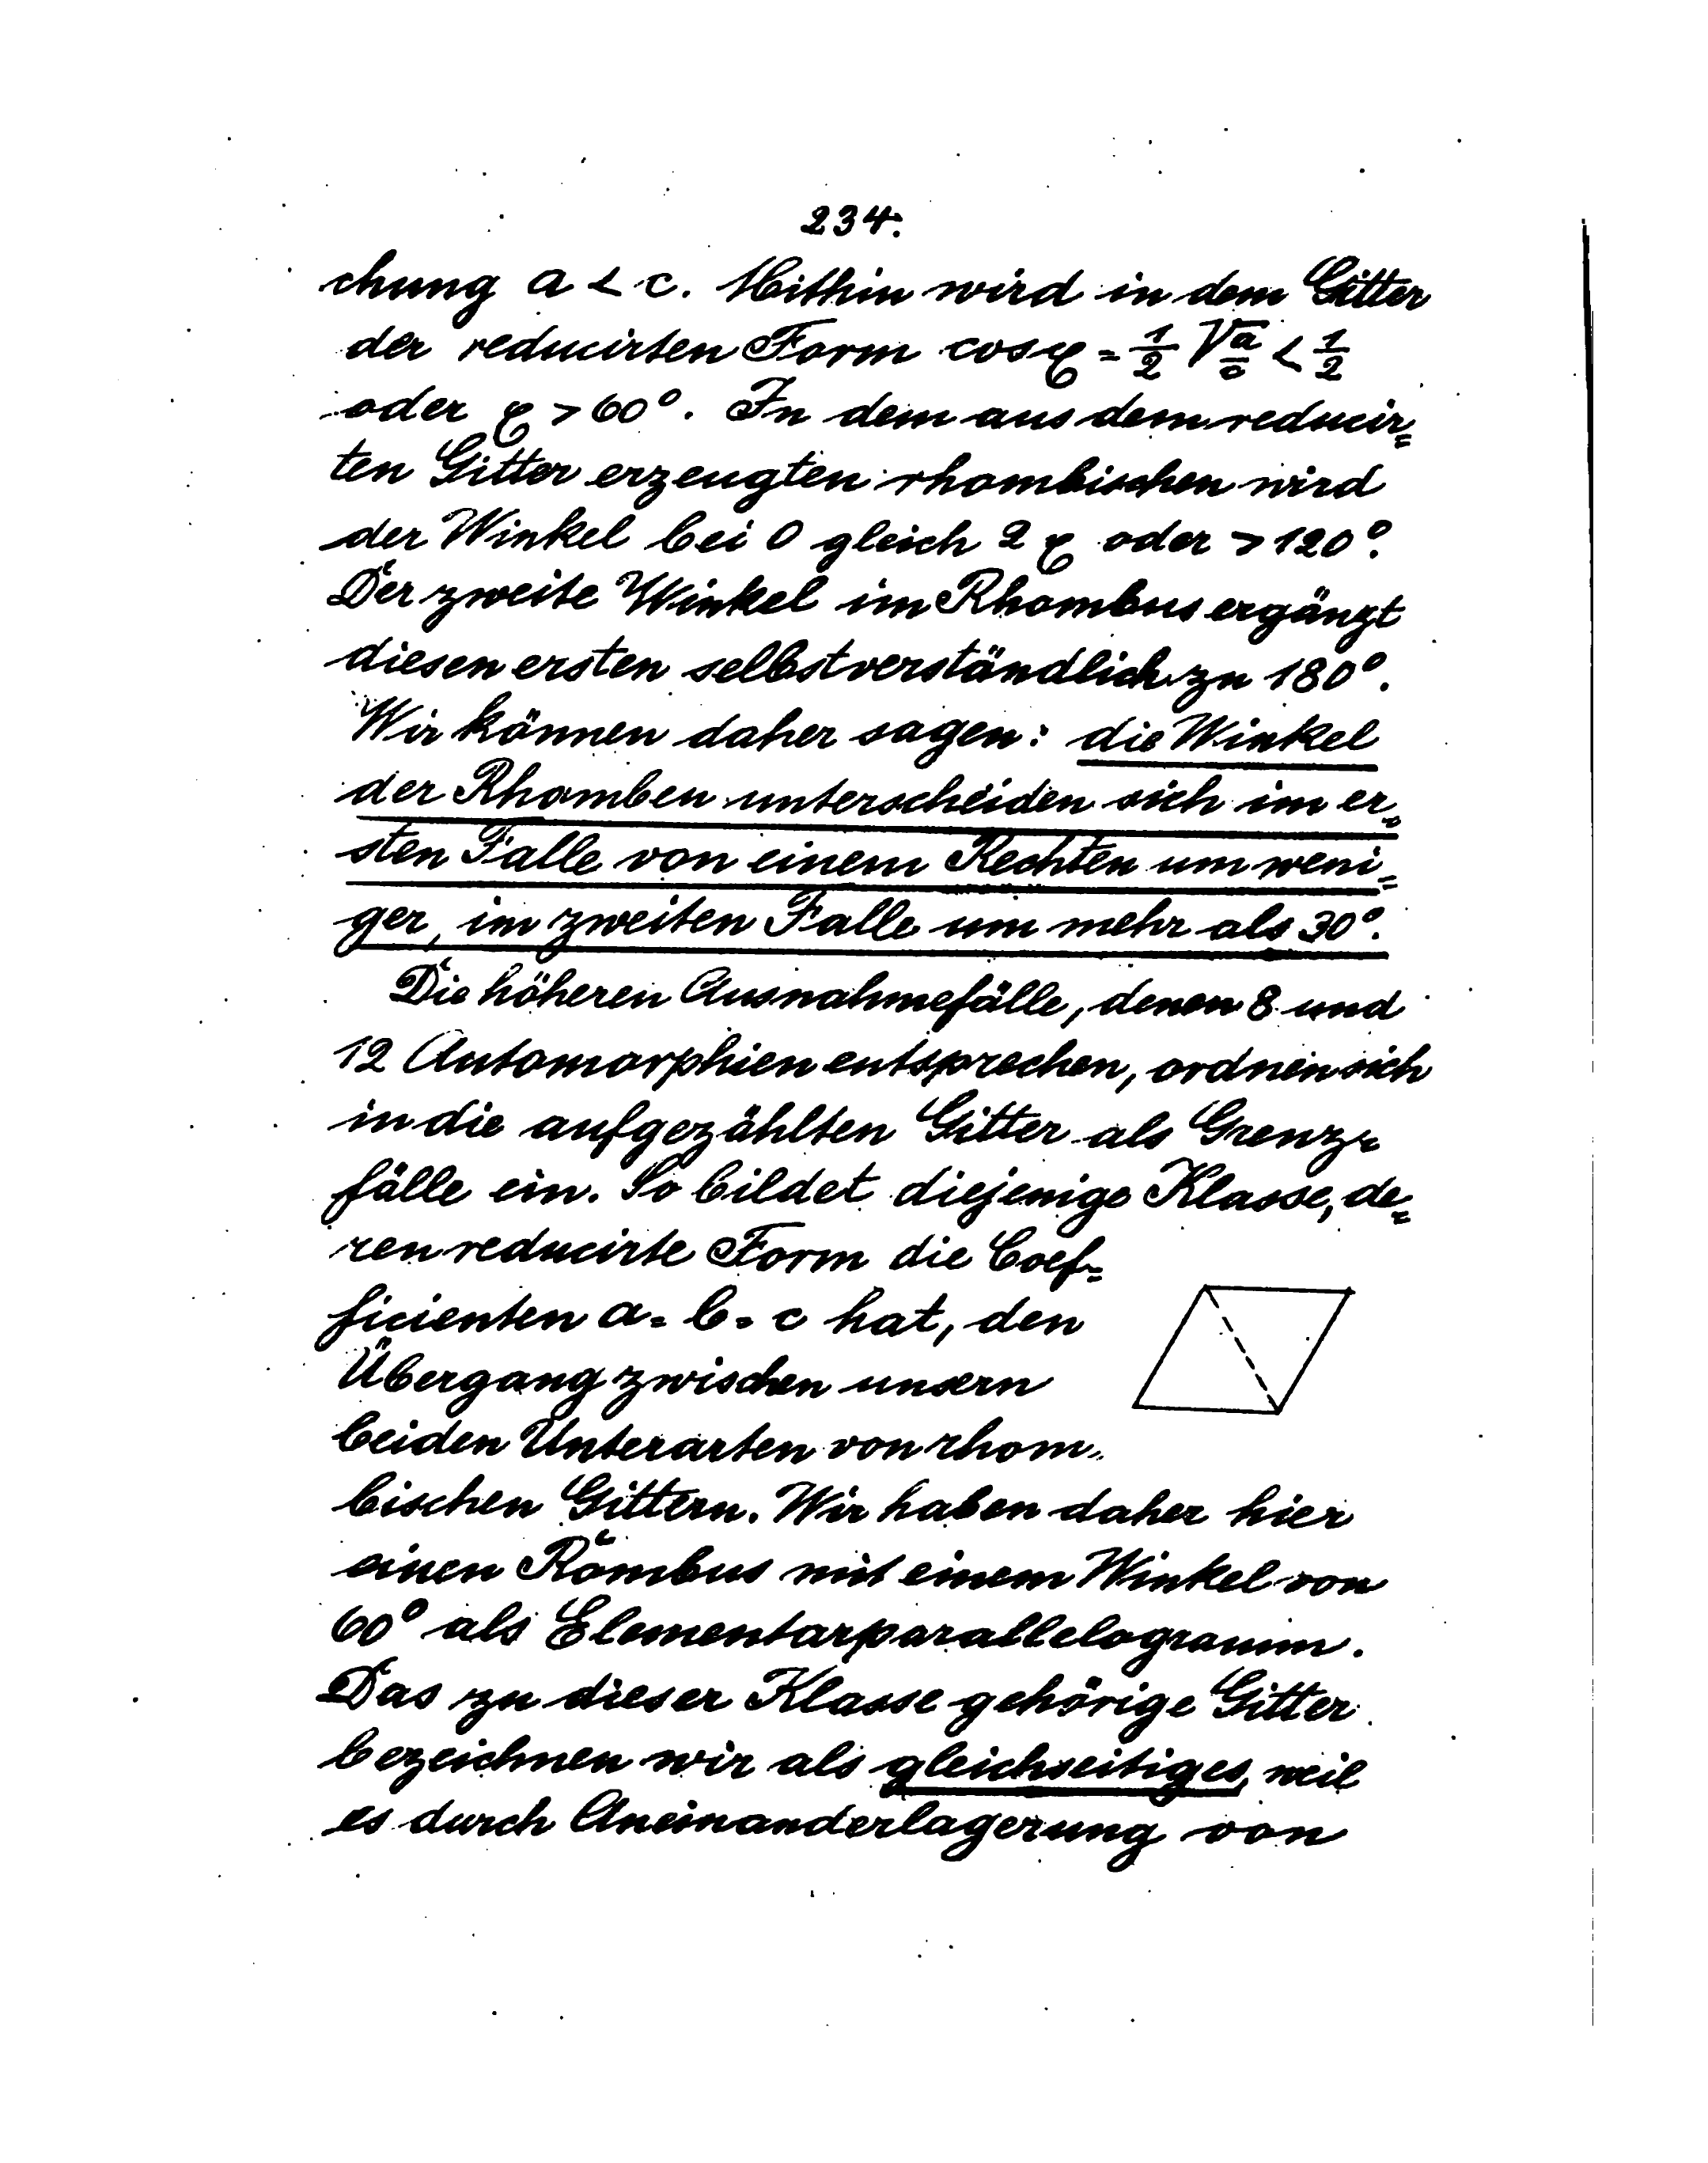 234.
chung a < c. Mithin wird in dem Gitter
der reducirten Form cos φ = 1/2 √a/c < 1/2
oder φ > 60°. In dem aus dem reducir=
ten Gitter erzeugten rhombischen wird
der Winkel bei 0 gleich 2 φ oder > 120°.
Der zweite Winkel im Rhombus ergänzt
diesen ersten selbstverständlich zu 180°.
Wir können daher sagen: die Winkel
der Rhomben unterscheiden sich im er=
sten Falle von einem Rechten um weni=
ger, im zweiten Falle um mehr als 30°.
Die höheren Ausnahmefälle, denen 8 und
12 Automorphien entsprechen, ordnen sich
in die aufgezählten Gitter als Grenz=
fälle ein. So bildet diejenige Klasse, de=
ren reducirte Form die Coef=
ficienten a = b = c hat, den
Übergang zwischen unsern
beiden Unterarten von rhom=
bischen Gittern. Wir haben daher hier
einen Rombus mit einem Winkel von
60° als Elementarparallelogramm.
Das zu dieser Klasse gehörige Gitter
bezeichnen wir als gleichseitiges, weil
es durch Aneinanderlagerung von